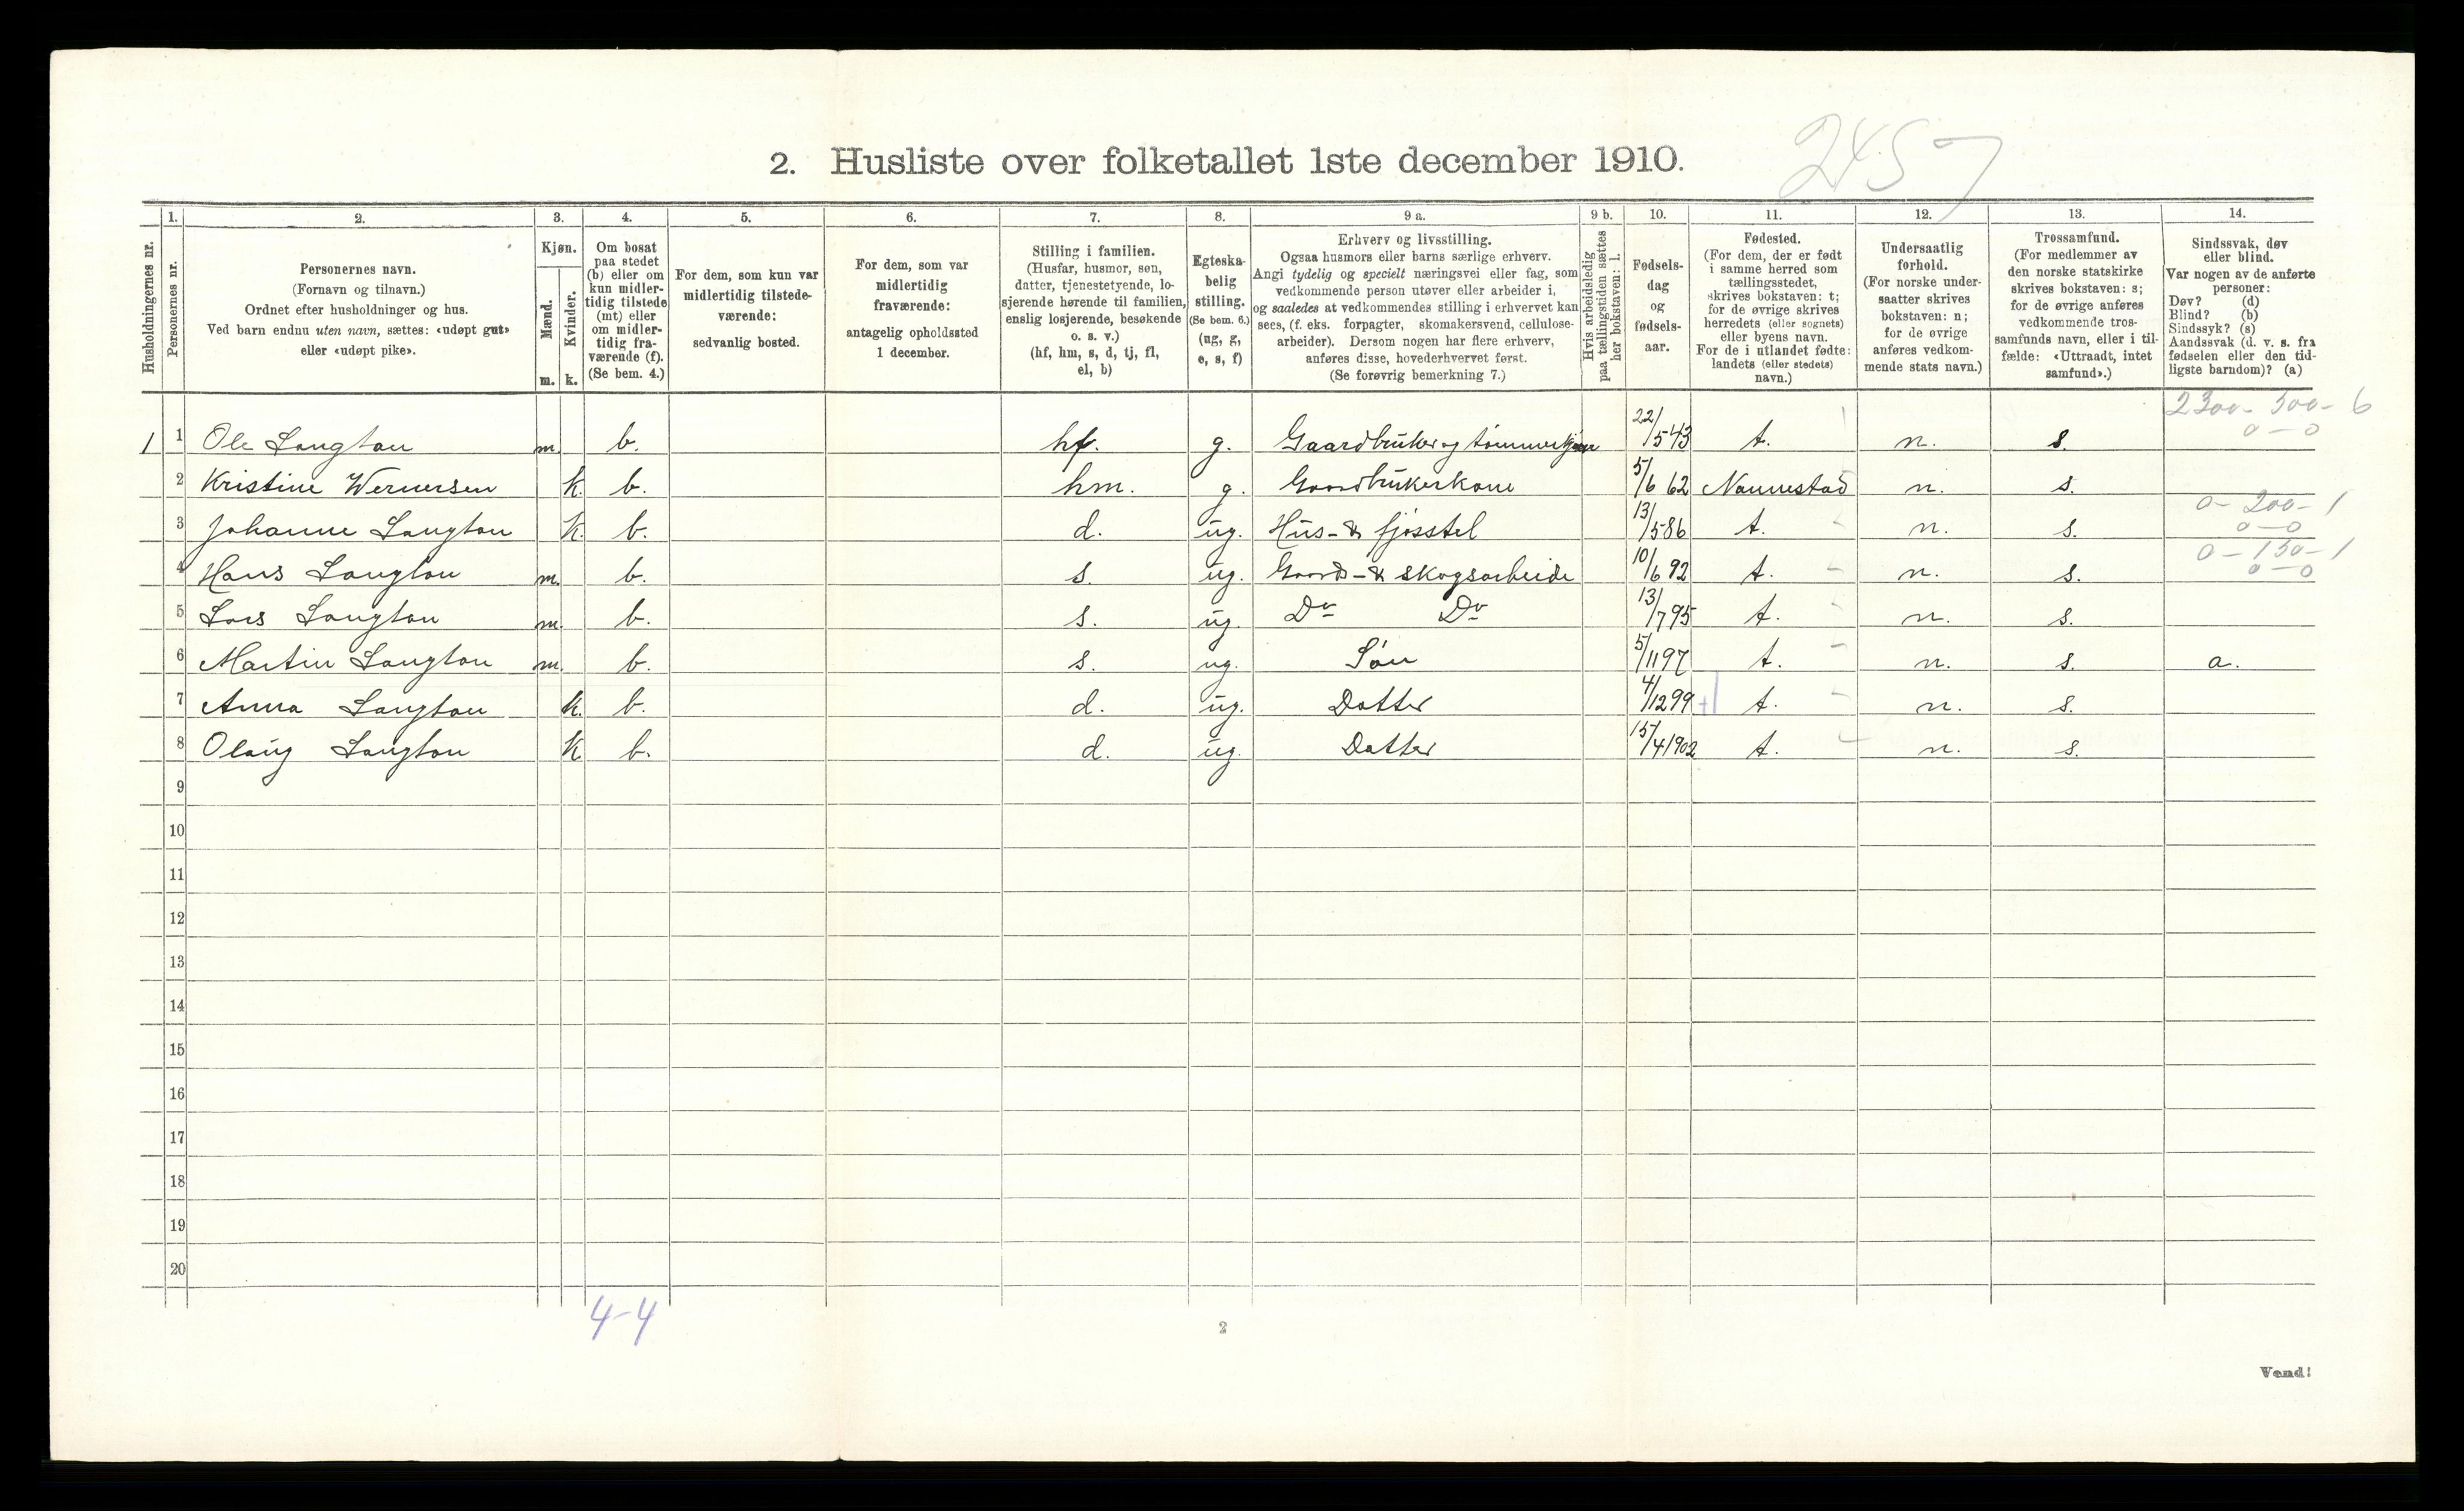 2. Husliste over folketallet 1ste december 1910.
245
1. 2. 3. 4. 5. 6. 7. 8. 9 a. 9 b. 10. 11. 12. 13. 14.
Husholdningernes nr.
Personernes nr.
Personernes navn.
(Fornavn og tilnavn.)
Ordnet efter husholdninger og hus.
Ved barn endnu uten navn, sættes: «udøpt gut»
eller «udøpt pike».
Kjøn.
Mænd.
Kvinder.
m. k.
Om bosat
paa stedet
(b) eller om
kun midler-
tidig tilstede
(mt) eller
om midler-
tidig fra-
værende (f).
(Se bem. 4.)
For dem, som kun var
midlertidig tilstede-
værende:
sedvanlig bosted.
For dem, som var
midlertidig
fraværende:
antagelig opholdssted
1 december.
Stilling i familien.
(Husfar, husmor, søn,
datter, tjenestetyende, lo-
sjerende hørende til familien,
enslig losjerende, besøkende
o. s. v.)
(hf, hm, s, d, tj, fl,
el, b)
Egteska-
belig
stilling.
(Se bem. 6.)
(ug, g,
e, s, f)
Erhverv og livsstilling.
Ogsaa husmors eller barns særlige erhverv.
Angi tydelig og specielt næringsvei eller fag, som
vedkommende person utøver eller arbeider i,
og saaledes at vedkommendes stilling i erhvervet kan
sees, (f. eks. forpagter, skomakersvend, cellulose-
arbeider). Dersom nogen har flere erhverv,
anføres disse, hovederhvervet først.
(Se forøvrig bemerkning 7.)
Hvis arbeidsledig
paa tællingstiden sættes
her bokstaven: l.
Fødsels-
dag
og
fødsels-
aar.
Fødested.
(For dem, der er født
i samme herred som
tællingsstedet,
skrives bokstaven: t;
for de øvrige skrives
herredets (eller sognets)
eller byens navn.
For de i utlandet fødte:
landets (eller stedets)
navn.)
Undersaatlig
forhold.
(For norske under-
saatter skrives
bokstaven: n;
for de øvrige
anføres vedkom-
mende stats navn.)
Trossamfund.
(For medlemmer av
den norske statskirke
skrives bokstaven: s;
for de øvrige anføres
vedkommende tros-
samfunds navn, eller i til-
fælde: «Uttraadt, intet
samfund».)
Sindssvak, døv
eller blind.
Var nogen av de anførte
personer:
Døv? (d)
Blind? (b)
Sindssyk? (s)
Aandssvak (d. v. s. fra
fødselen eller den tid-
ligste barndom)? (a)
2300- 500- 6
0-0
1 1 Ole Langton m. b. hf. g. Gaardbruker og tømmerkjører 22/5 43 t. n. s.
2 Kristine Wernersen k. b. hm. g. Gaardbrukerkone 5/6 62 Nannestad n. s.
0- 200- 1
0-0
3 Johanne Langton k. b. d. ug. Hus- & fjøsstel 13/5 86 t. n. s.
0- 150- 1
0-0
4 Hans Langton m. b. s. ug. Gaards- & skogsarbeide 10/6 92 t. n. s.
5 Lars Langton m. b. s. ug. Do Do 13/7 95 t. n. s.
6 Martin Langton m. b. s. ug. Søn 5/11 97 t. n. s. a.
7 Anna Langton k. b. d. ug. Datter 4/12 99 t. n. s.
8 Olaug Langton k b. d. ug. Datter 15/4 1902 t. n. s.
9
10
11
12
13
14
15
16
17
18
19
20
4-4
2
Vend!